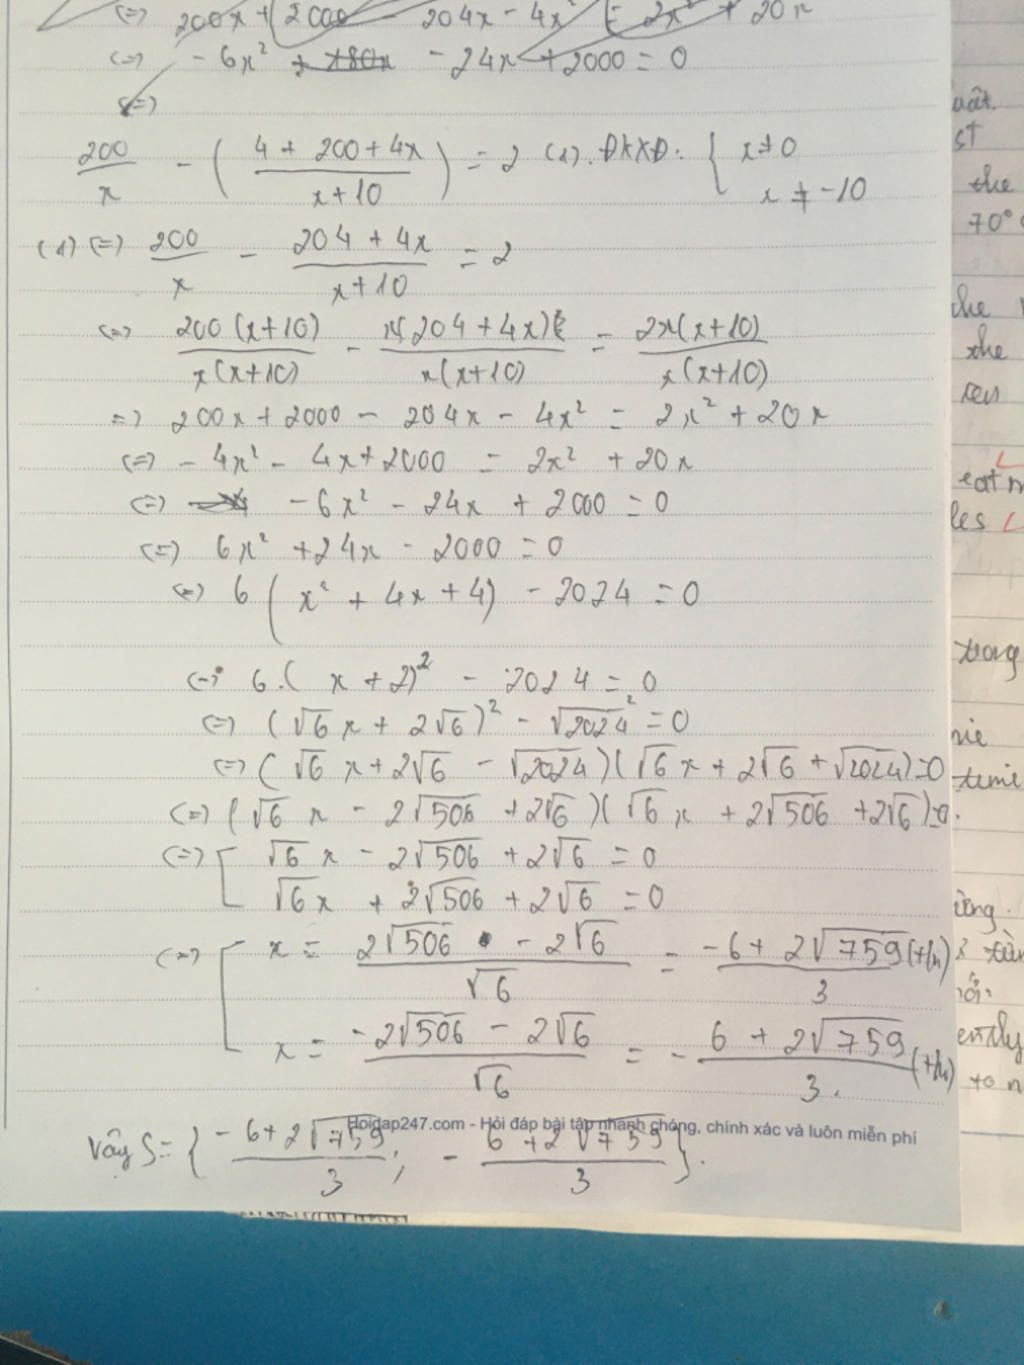 (=) 200x + (2000 - 204x - 4x² = 2x² + 20x
(=) - 6x² + 180x - 24x + 2000 = 0
(=)
200/x - ( (4 + 200 + 4x)/(x+10) ) = 2 (1). ĐKXĐ: { x ≠ 0
x ≠ -10
(1) (=) 200/x - (204 + 4x)/(x+10) = 2
(=) 200(x+10)/x(x+10) - x(204 + 4x)/x(x+10) = 2x(x+10)/x(x+10)
=) 200x + 2000 - 204x - 4x² = 2x² + 20x
(=) - 4x² - 4x + 2000 = 2x² + 20x
(=) - 6x² - 24x + 2000 = 0
(=) 6x² + 24x - 2000 = 0
(=) 6 ( x² + 4x + 4) - 2024 = 0
(=) 6.( x + 2)² - 2024 = 0
(=) (√6 x + 2√6)² - √2024² = 0
(=) (√6 x + 2√6 - √2024)(√6 x + 2√6 + √2024) = 0
(=) (√6 x - 2√506 + 2√6)(√6 x + 2√506 + 2√6) = 0.
(=) [ √6 x - 2√506 + 2√6 = 0
√6 x + 2√506 + 2√6 = 0
(=) [ x = (2√506 - 2√6)/√6 = (-6 + 2√759)/3 (t/m)
x = (-2√506 - 2√6)/√6 = - (6 + 2√759)/3 (t/m)
Vậy S = { (-6 + 2√759)/3 ; - (6 + 2√759)/3 }.
Hoidap247.com - Hỏi đáp bài tập nhanh chóng, chính xác và luôn miễn phí
uất.
ST
the
70°
the
the
ren
eat
les
trong
time
ường.
tân
rồi.
ently
to